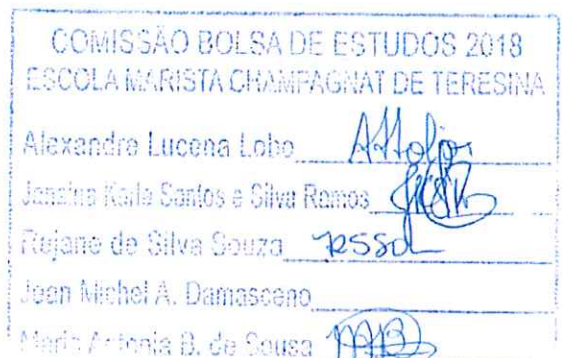 COMISSÃO BOLSA DE ESTUDOS 2018
ESCOLA MARISTA CHAMPAGNAT DE TERESINA
Alexandre Lucena Lobo
Janaina Karla Santos e Silva Ramos
Rejane de Silva Souza
Jean Michel A. Damasceno
Maria Antonia B. de Sousa